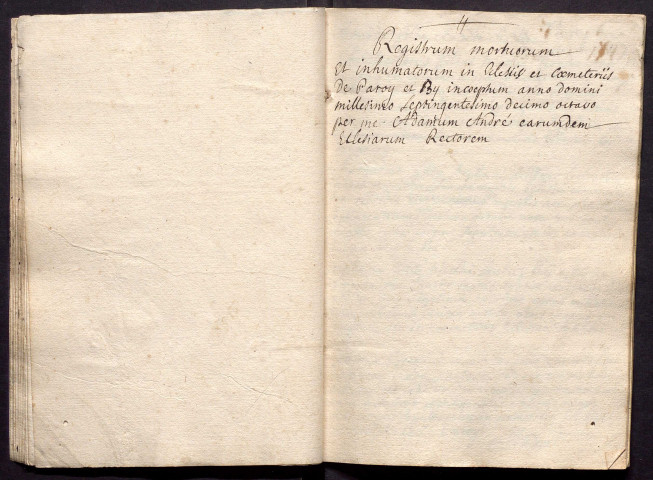 Registrum mortuorum
Et inhumatorum in Ecclesiis et Coemeteriis
De Paroy et By incoeptum anno domini
millesimo Septingentesimo decimo octavo
per me Adamum André earumdem
Ecclesiarum Rectorem